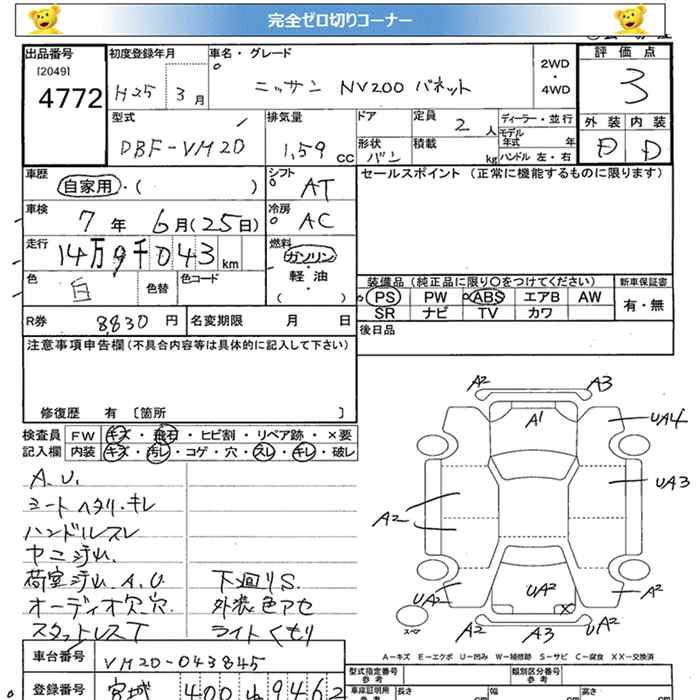 完全ゼロ切りコーナー
出品番号 初度登録年月 車名・グレード 2WD・4WD 評価点
[2049]
4772 H25年 3月 ニッサン NV200 バネット 3
型式 排気量 ドア 定員 2人 ディーラー・並行 外装 内装
DBF-VM20 1,59cc 形状 バン 積載 kg モデル年式 年 ハンドル 左・右 D D
車歴 自家用・( ) シフト AT セールスポイント (正常に機能するものに限ります)
車検 7年 6月(25日) 冷房 AC
走行 14万9千043km 燃料 ガソリン・軽油 ( )
色 白 色替 色コード 装備品(純正品に限り○をつけてください) 新車保証書
PS PW ABS エアB AW 有・無
SR ナビ TV カワ
R券 8,830円 名変期限 月 日 後日品
注意事項申告欄(不具合内容等は具体的に記入して下さい)
修復歴 有 [箇所 ]
検査員 FW キズ・飛石・ヒビ割・リペア跡・×要
記入欄 内装 キズ・汚レ・コゲ・穴・スレ・キレ・破レ
A.U.
シートヘタリ.キレ
ハンドルスレ
ヤニ汚れ.
荷室汚れ.A.U. 下廻りS.
オーディオ欠.穴. 外装色アセ
スタットレスT ライトくもり
A2 A3
A1 UA4
UA3
A2
UA2 UA2 A2
X
スペア A2 A3 UA2
A-キズ E-エクボ U-凹み W-補修跡 S-サビ C-腐食 XX-交換済
車台番号 VM20-043845 型式指定番号 参考 類別区分番号 参考
登録番号 宮城 400 ゆ 9462 車庫証明用 参考 長さ cm 幅 cm 高さ cm